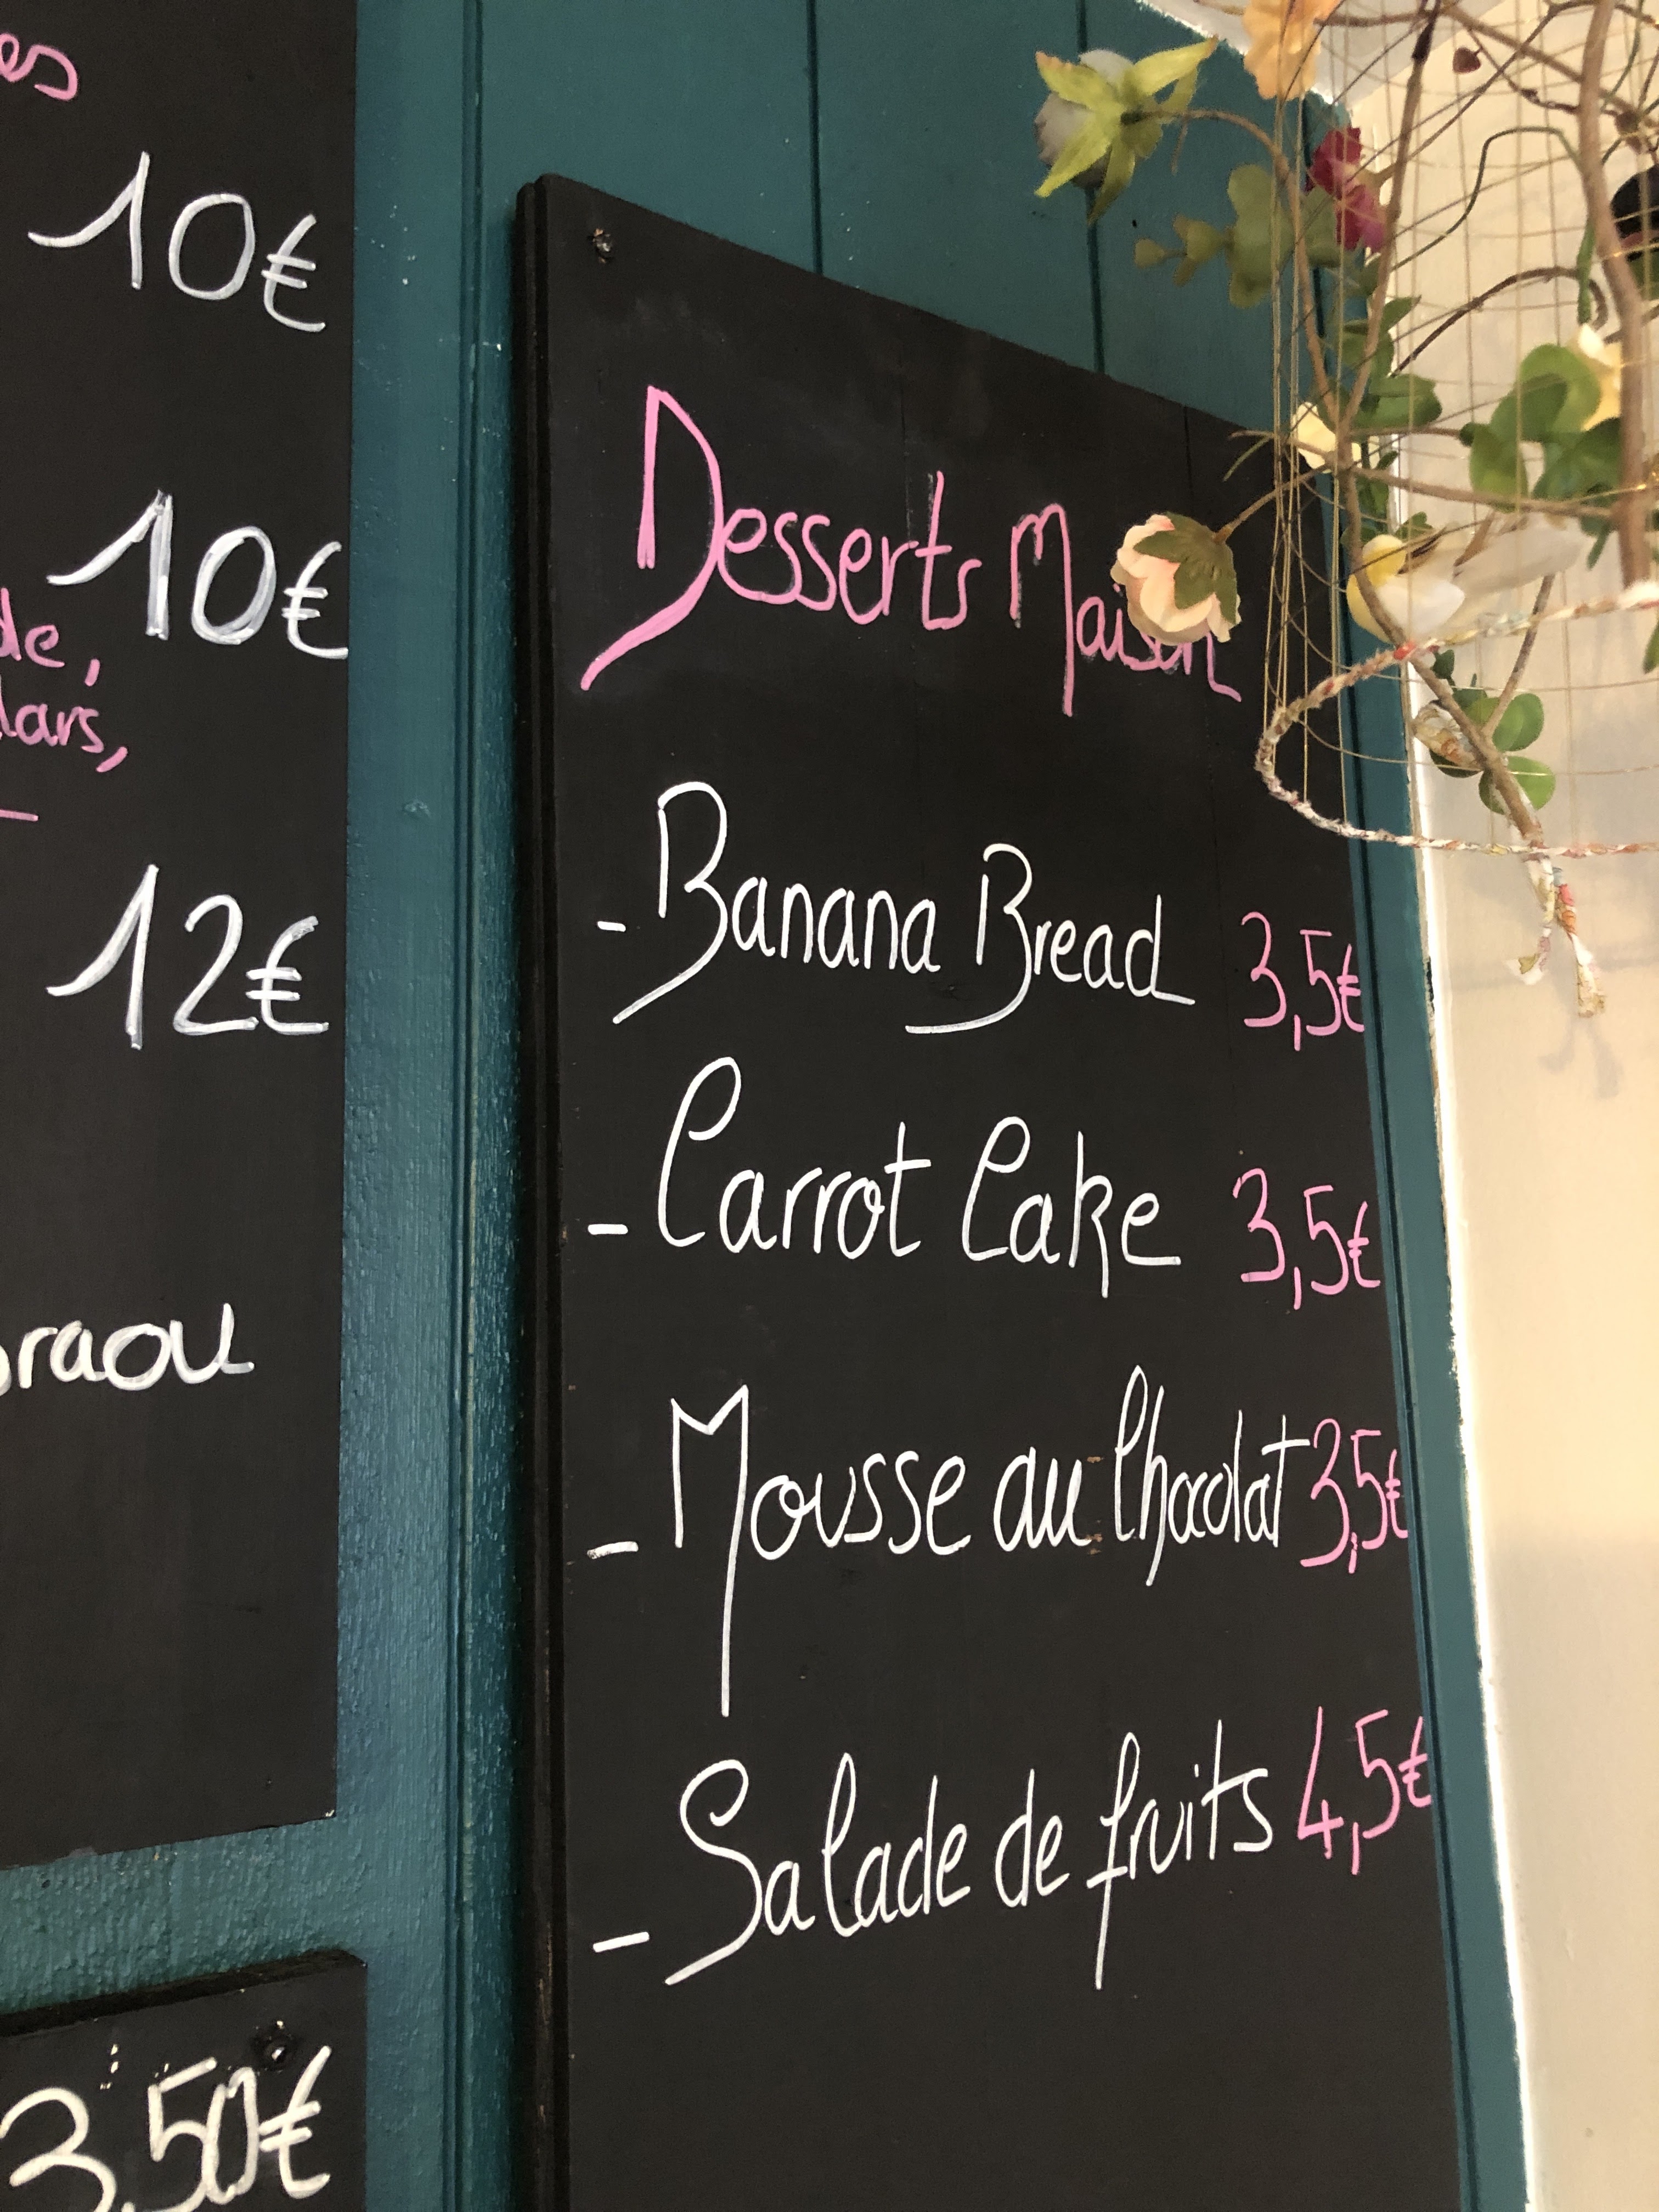 10€
10€
12€
3,50€
Desserts Maison
- Banana Bread 3,5€
- Carrot Cake 3,5€
- Mousse au Chocolat 3,5€
- Salade de fruits 4,5€